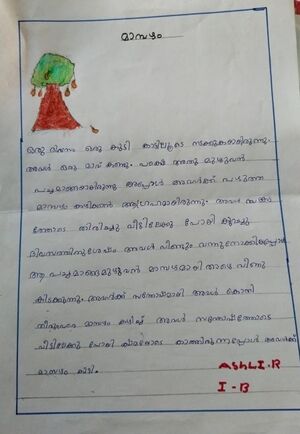 മാമ്പഴം
ഒരു ദിവസം ഒരു കുട്ടി കാട്ടിലൂടെ നടക്കുകയായിരുന്നു.
അവൾ ഒരു മാവ് കണ്ടു. പക്ഷെ അതു മുഴുവൻ
പച്ചമാങ്ങയായിരുന്നു അപ്പോൾ അവൾക്ക് പഴുത്ത
മാമ്പഴം കഴിക്കാൻ ആഗ്രഹമായിരുന്നു. അവൾ സങ്കട
ത്തോടെ തിരിച്ചു വീട്ടിലേക്കു പോയി കുറച്ചു
ദിവസത്തിനുശേഷം അവൾ വീണ്ടും വന്നുനോക്കിയപ്പോൾ
ആ പച്ചമാങ്ങമുഴുവൻ മാമ്പഴമായി താഴെ വീണു
കിടക്കുന്നു. അവൾക്ക് സന്തോഷമായി അവൾ കൊതി
തീരുവരെ മാമ്പഴം കഴിച്ച് അവൾ സന്തോഷത്തോടെ
വീട്ടിലേക്കു പോയി ക്ഷമയോടെ കാത്തിരുന്നപ്പോൾ അവൾക്ക്
മാമ്പഴം കിട്ടി.
AShLI.R
I-B